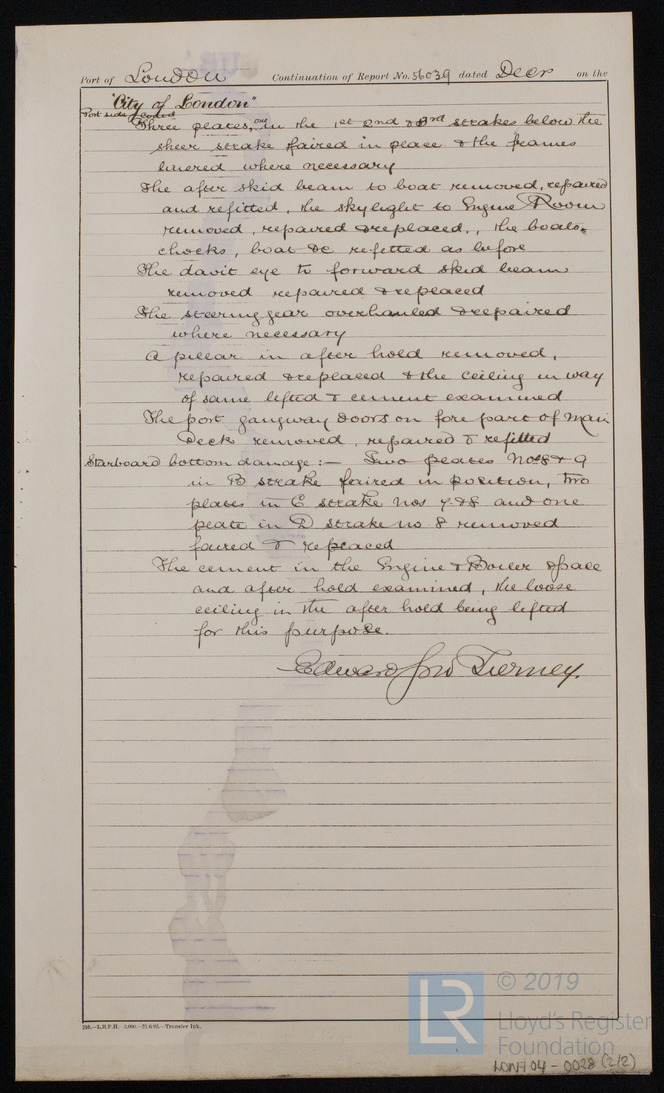 Port of London Continuation of Report No. 56039 dated Decr on the
"City of London"
Port side
Three plates, one in the 1st 2nd & 3rd strakes below the
sheer strake faired in place & the frames
linered where necessary
The after skid beam to boat removed, repaired
and refitted, the skylight to Engine Room
removed, repaired & replaced, the boats
chocks, boat &c refitted as before
The davit eye to forward skid beam
removed repaired & replaced
The steering gear overhauled & repaired
where necessary
A pillar in after hold removed,
repaired & replaced & the ceiling in way
of same lifted & cement examined
The port gangway doors on fore part of Main
Deck removed, repaired & refitted
Starboard bottom damage:- Two plates Nos 8 & 9
in B strake faired in position, two
plates in C strake nos 7 & 8 and one
plate in D strake no 8 removed
faired & replaced
The cement in the Engine & Boiler Space
and after hold examined, the loose
ceiling in the after hold being lifted
for this purpose.
Edward Jno Tierney.
L.R.P.H.—3,000.— Transfer Ink.
LR © 2019
Lloyd's Register
Foundation
LON704-0028 (2/2)